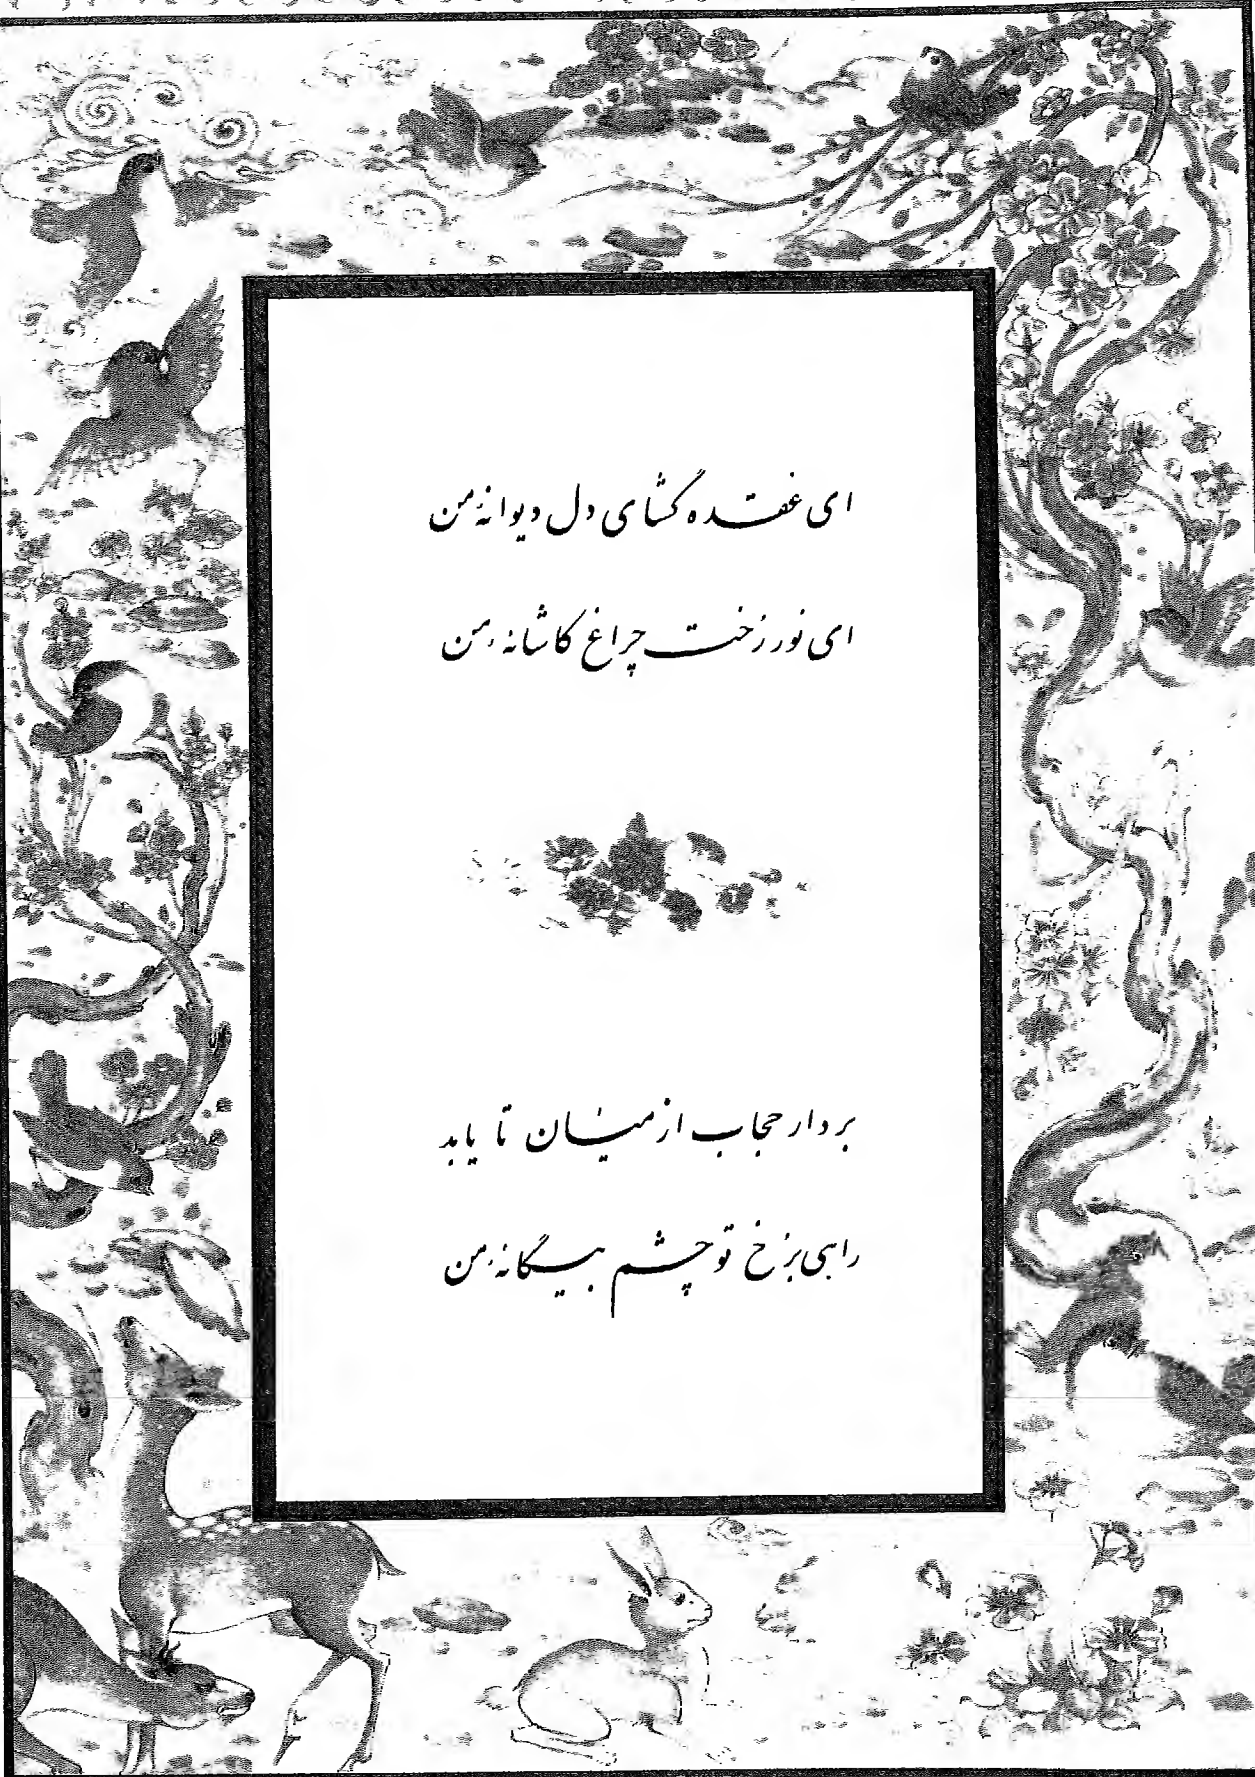 ای عقده گشای دل دیوانهٔ من
ای نور رخت چراغ کاشانهٔ من
بردار حجاب از میان تا یابد
راهی برخ تو چشم بیگانهٔ من